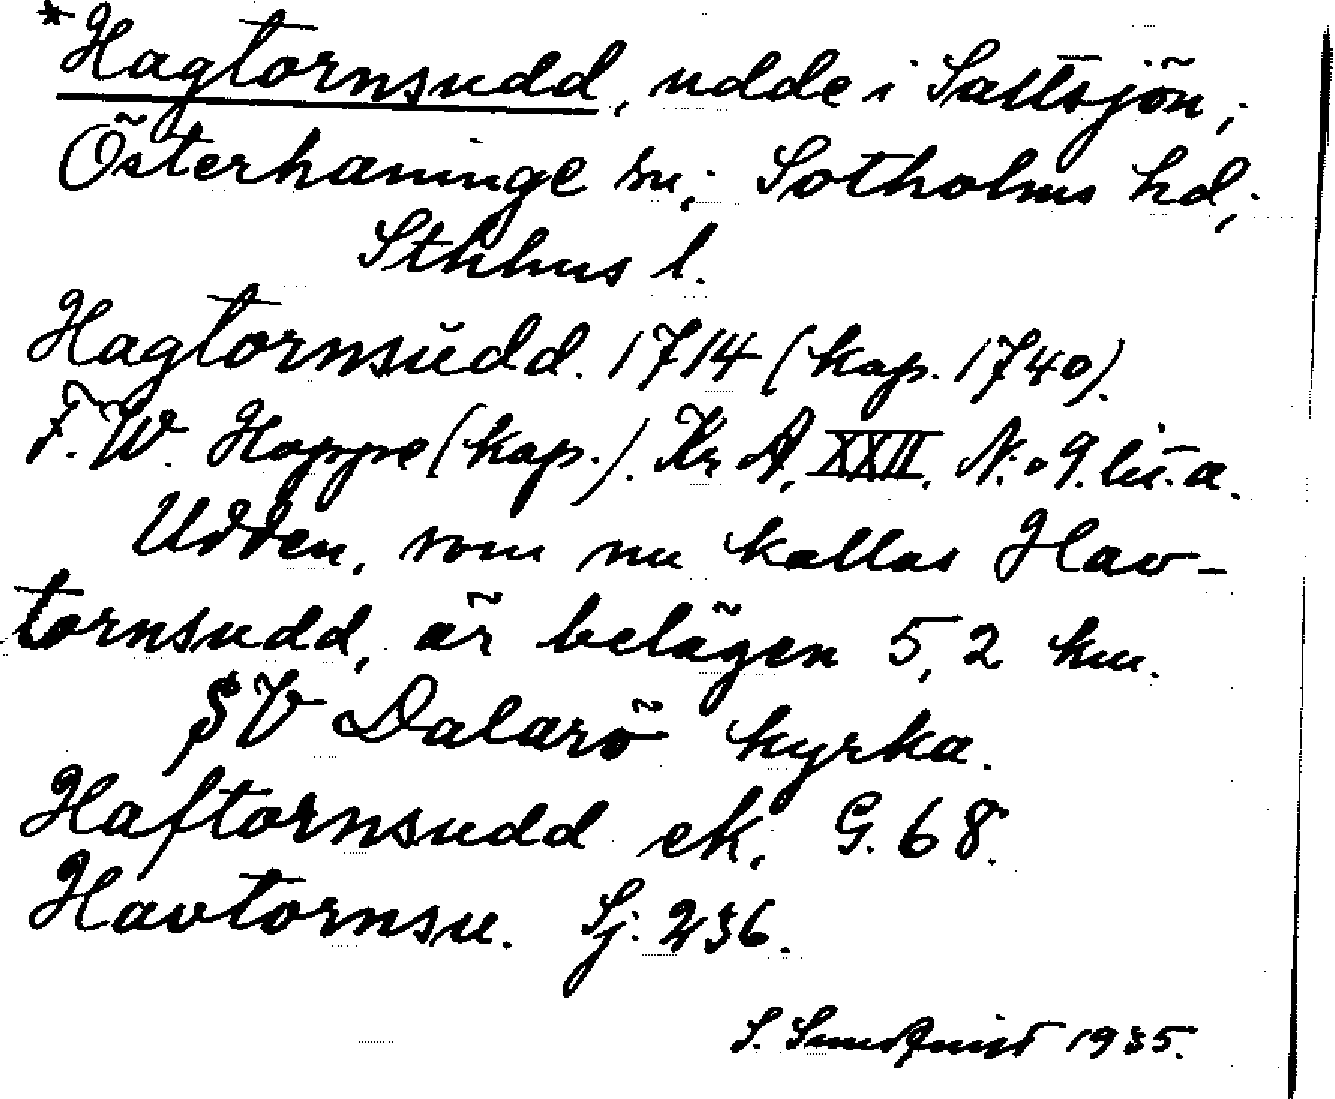 *Hagtornsudd, udde i Saltsjön,
Österhaninge sn, Sotholms hd,
Sthlms l.
Hagtornsudd. 1714 (kop. 1740).
F. W. Hoppe (kop.). Kr A, XXII. N:o 9. lit. a.
Udden, som nu kallas Hav-
tornsudd, är belägen 5,2 km.
SV Dalarö kyrka.
Haftornsudd ek, G. 68.
Havtornsu. Sj. 236.
S. Sundqvist 1935.